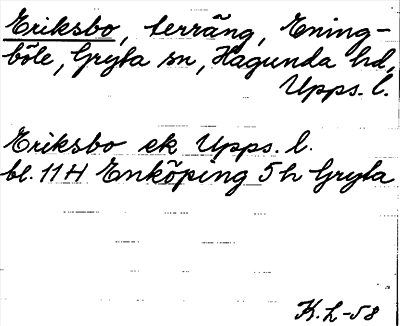 Eriksbo, terräng, Ening-
böle, Gryta sn, Hagunda hd,
Upps. l.
Eriksbo ek Upps. l.
bl. 11H Enköping 5h Gryta
K.L-58